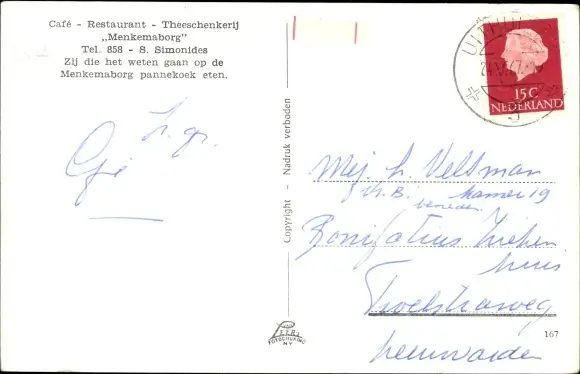 Café - Restaurant - Theeschenkerij
„Menkemaborg”
Tel. 858 - S. Simonides
Zij die het weten gaan op de
Menkemaborg pannekoek eten.
h. gr.
Copyright - Nadruk verboden
15c
NEDERLAND
Mej. h. Veltman
kamer 19
beneden
Bonifatius Zieken
huis
Troelstraweg
Leeuwarden
FOTODRUKKERIJ
N.V.
167